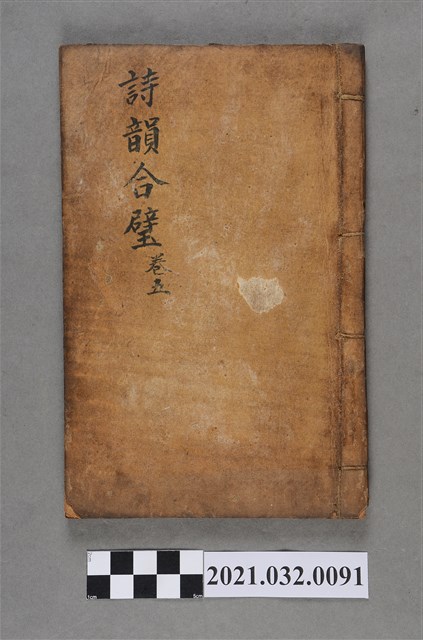 詩韻合璧
卷五
2021.032.0091
1cm
5cm